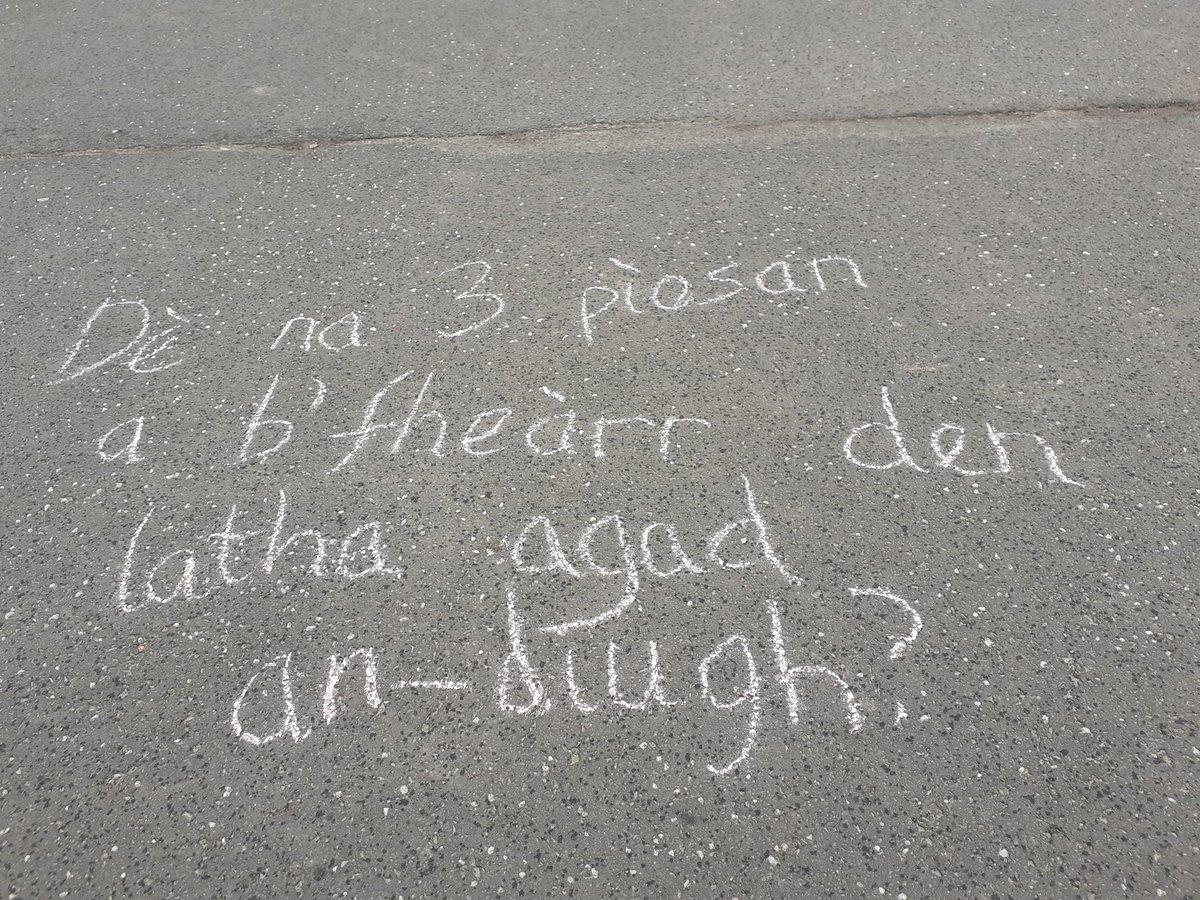 Dè na 3 pìosan
a b'fheàrr den
latha agad
an-diugh?